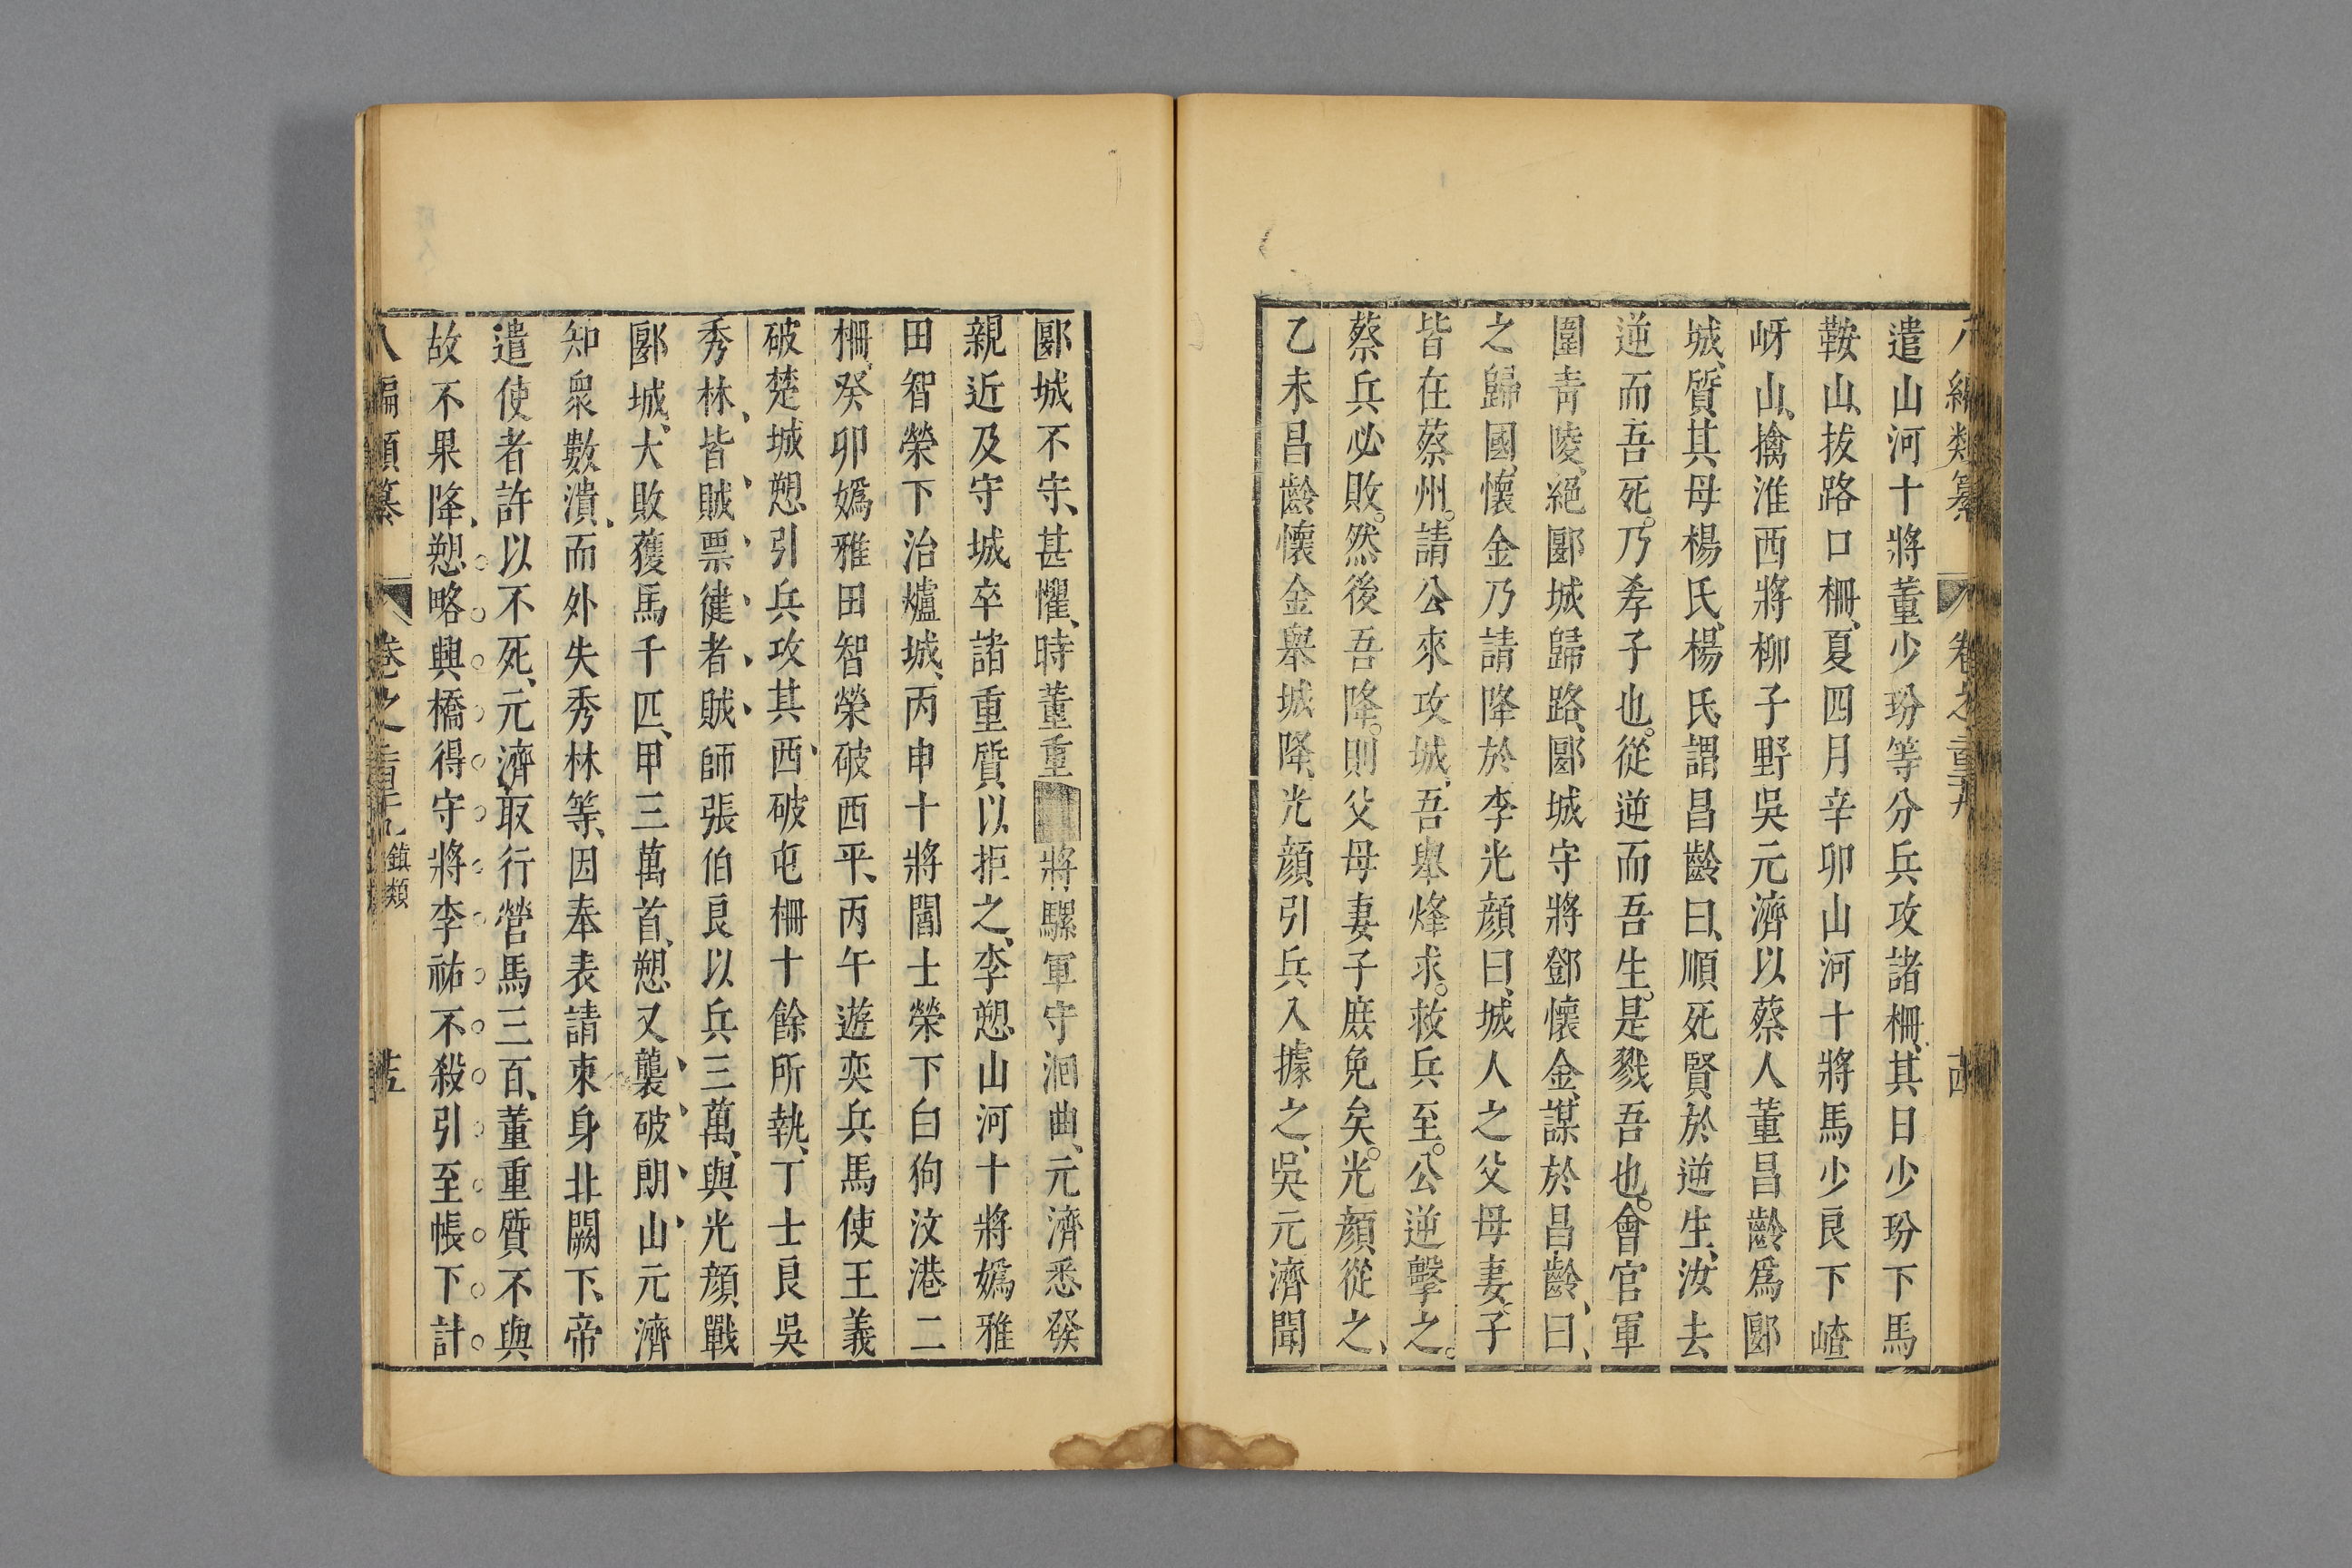 八編類纂 卷之
遣山河十將董少玢等分兵攻諸柵、其日少玢下馬
鞍山、拔路口柵、夏四月辛卯山河十將馬少良下嵖
岈山、擒淮西將柳子野吳元濟以蔡人董昌齡爲郾
城、質其母楊氏、楊氏謂昌齡曰、順死賢於逆生、汝去
逆而吾死。乃孝子也。從逆而吾生。是戮吾也。會官軍
圍青陵、絕郾城歸路、郾城守將鄧懷金、謀於昌齡、曰、
之歸國、懷金乃請降於李光顔曰、城人之父母妻子
皆在蔡州。請公來攻城、吾舉烽求。救兵至。公逆擊之。
蔡兵必敗。然後吾降。則父母妻子庶免矣。光顔從之、
乙未昌齡懷金舉城降、光顔引兵入據之、吳元濟聞
郾城不守、甚懼、時董重將騾軍守洄曲、元濟悉發
親近及守城卒諸重質以拒之、李愬山河十將嬀雅
田智榮下治爐城、丙申十將閻士榮下白狗汶港二
柵、癸卯嬀雅田智榮破西平、丙午遊奕兵馬使王義
破楚城愬引兵攻其西破屯柵十餘所執、丁士良吳
秀林、皆賊票健者賊師張伯良以兵三萬、與光顔戰
郾城、大敗獲馬千匹、甲三萬首、愬又襲破朗山、元濟
知衆數潰、而外失秀林等、因奉表請束身北闕下、帝
遣使者許以不死、元濟取行營馬三百、董重質不與
故不果降、愬略興橋得守將李祐不殺引至帳下計
八編類纂 卷之 鎮類